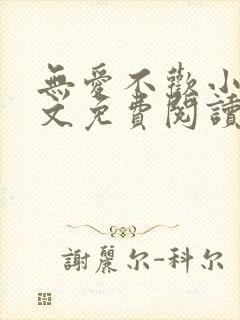 無愛不歡小
文免費閱讀
謝麗尔-科尔